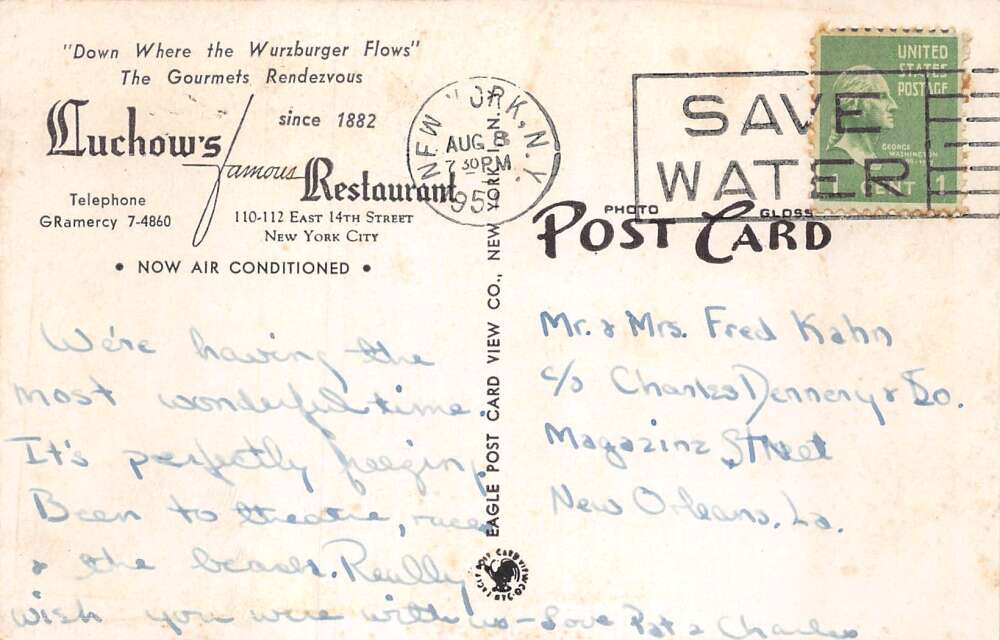 "Down Where the Wurzburger Flows"
The Gourmets Rendezvous
Luchow's since 1882
famous Restaurant
Telephone
GRamercy 7-4860
110-112 EAST 14TH STREET
NEW YORK CITY
• NOW AIR CONDITIONED •
We're having the
most wonderful time.
It's perfectly freezing
Been to theatre, races
& the beach. Really
wish you were with us - Love Pat & Charles
EAGLE POST CARD VIEW CO., NEW YORK, N.
NEW YORK, N.Y.
AUG 8
7 30 PM
195
SAVE
WATER
UNITED
STATES
POSTAGE
GEORGE
WASHINGTON
1 CENT 1
PHOTO GLOSS
POST CARD
Mr. & Mrs. Fred Kahn
c/o Charles Dennery & Co.
Magazine Street
New Orleans, La.